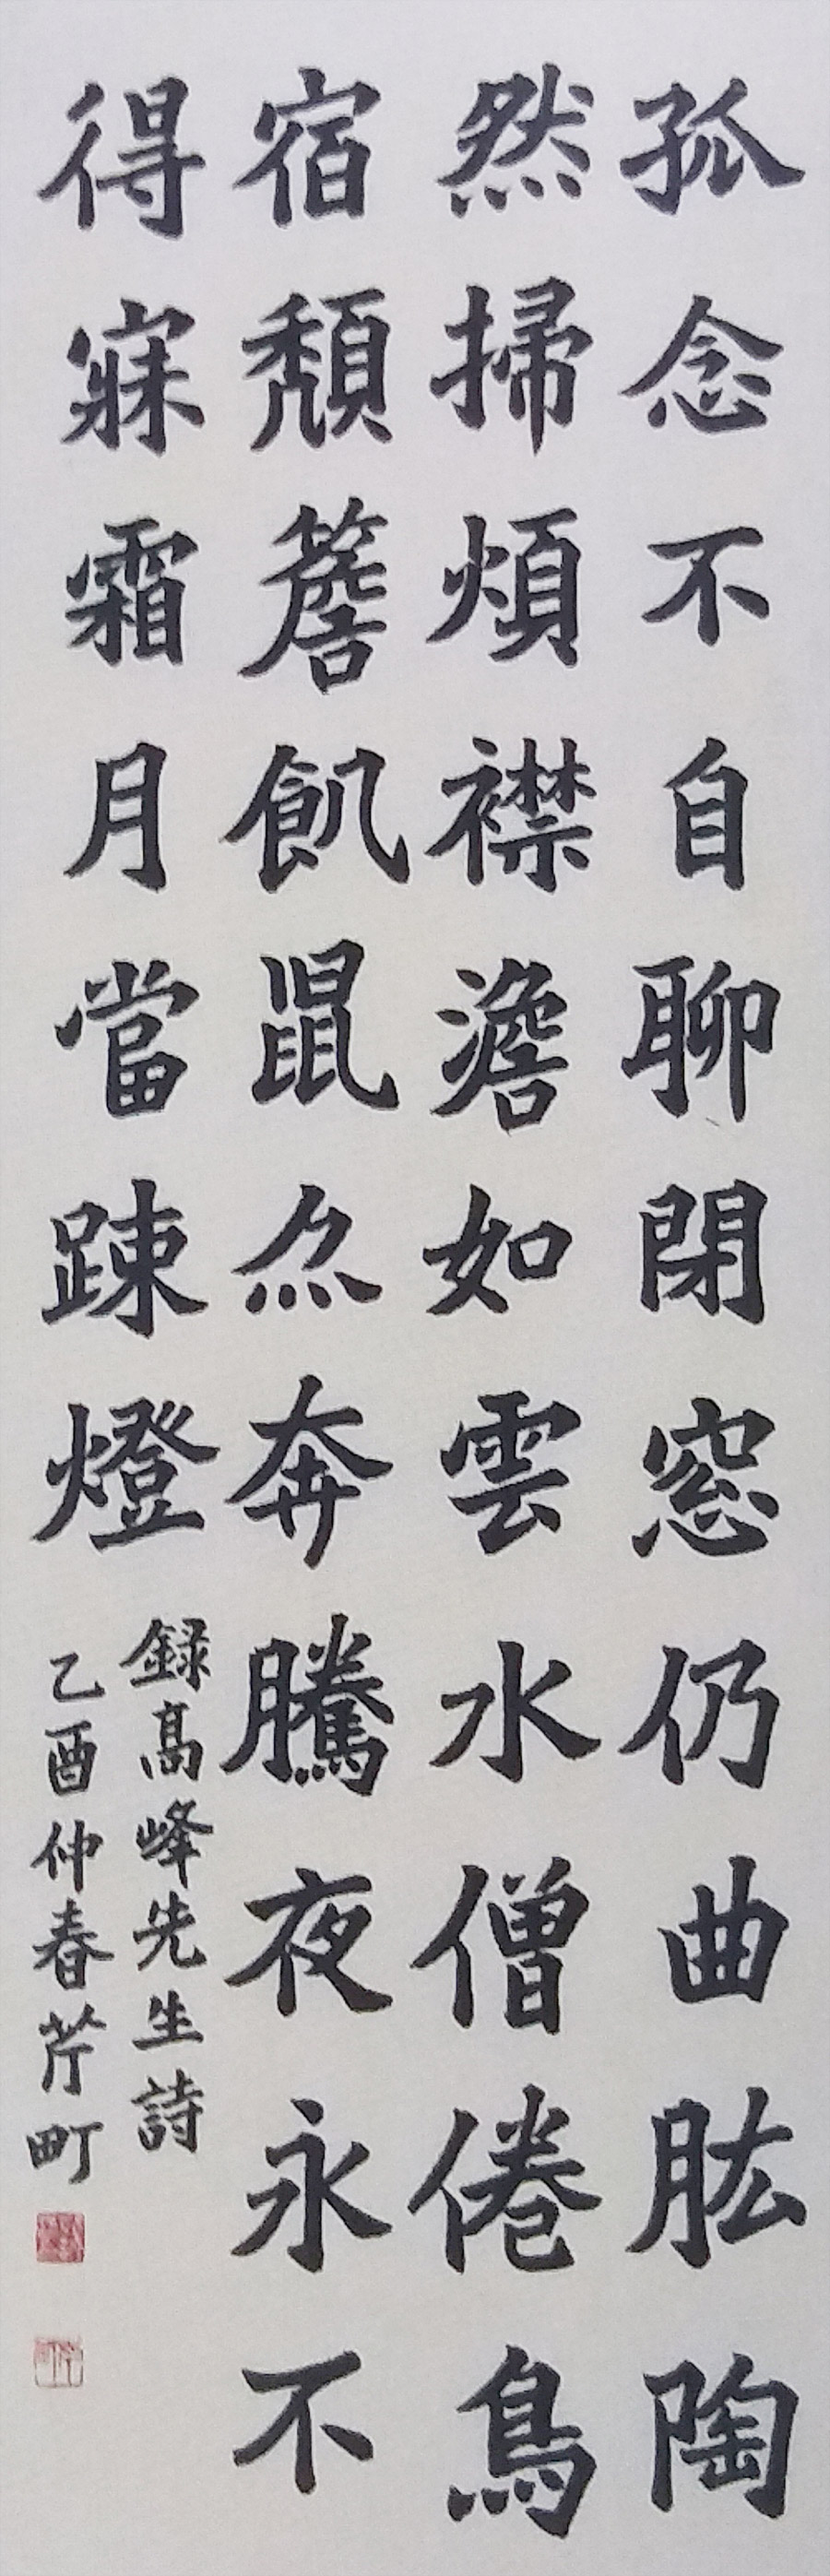 孤念不自聊閉窓仍曲肱陶
然掃煩襟澹如雲水僧倦鳥
宿頹簷飢鼠尒奔騰夜永不
得寐霜月當踈燈
録高峰先生詩
乙酉仲春芹町